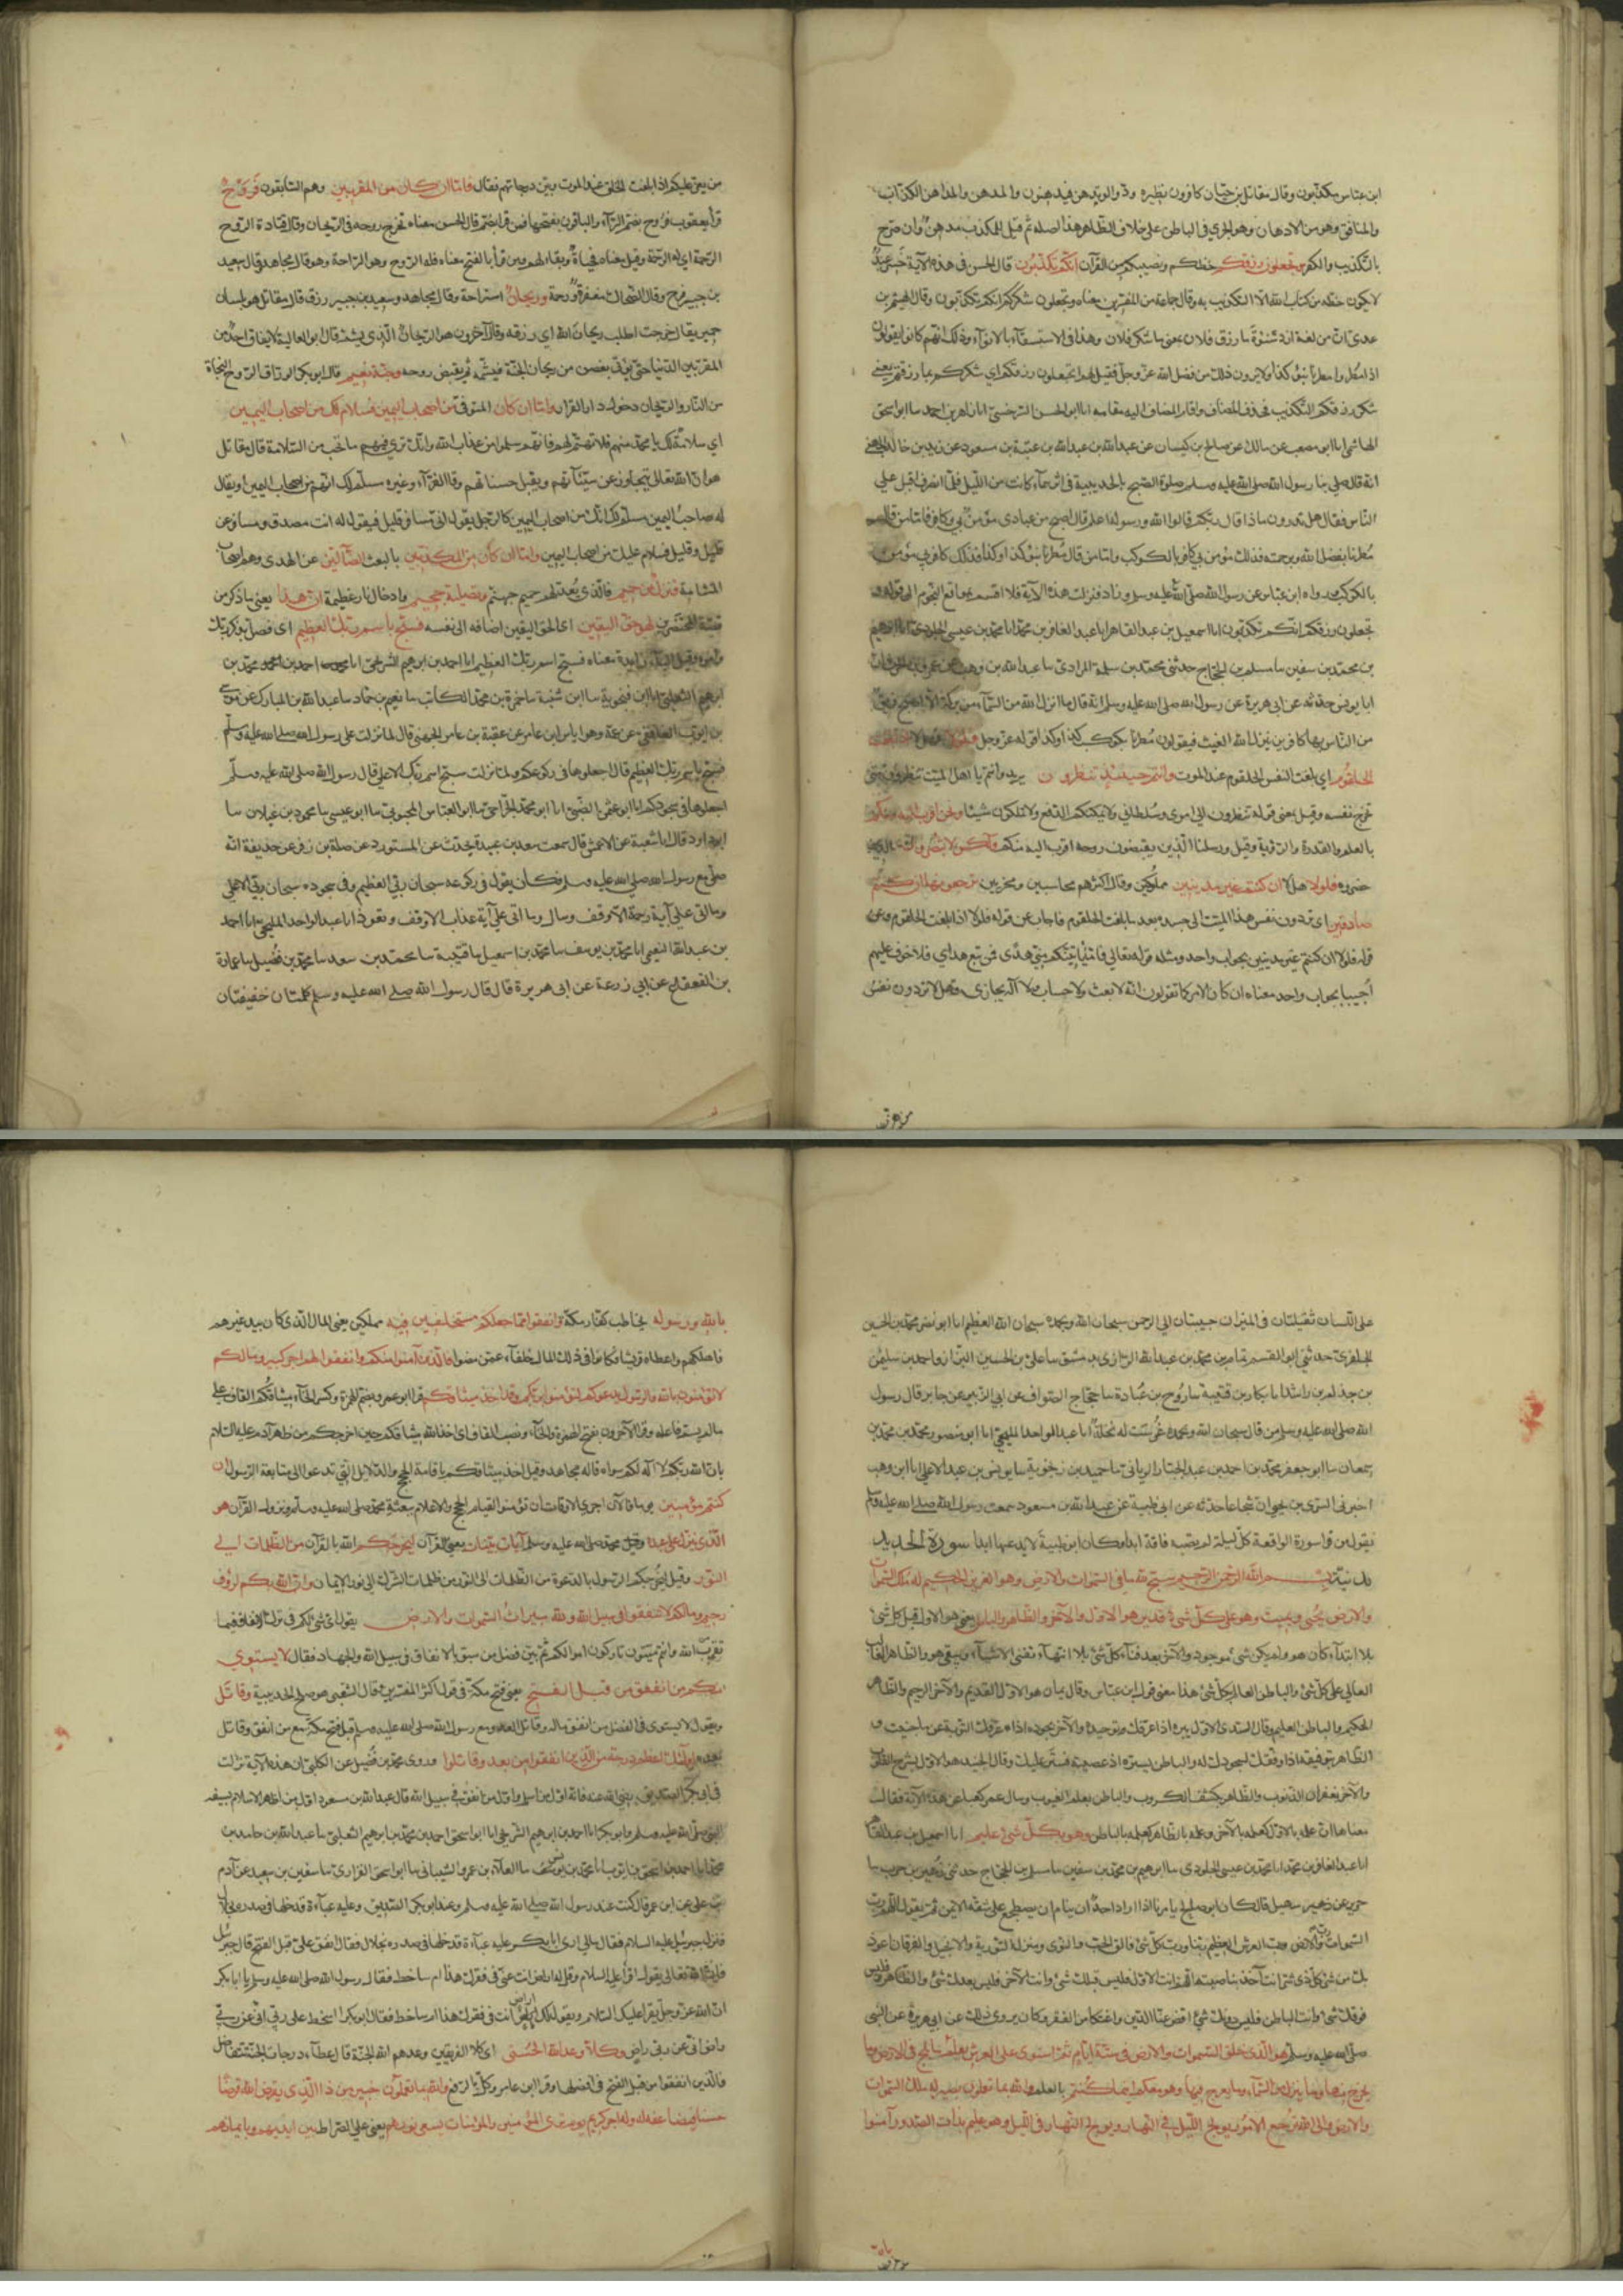 ابن عباس مكذبون وقال مقاتل بن حيان كافرون نظيره ودوا لو تدهن فيدهنون والمدهن والمداهن الكذاب
والمنافق وهو من الادهان وهو الجري في الباطن على خلاف الظاهر هذا اصله ثم قيل للمكذب مدهن وان صرح
بالتكذيب والكفر وتجعلون رزقكم حظكم ونصيبكم من القرآن انكم تكذبون قال الحسن في هذه الآية خسر عبد
لا يكون حظه من كتاب الله الا التكذيب به وقال جماعة من المفسرين معناه وتجعلون شكركم انكم تكذبون وقال الهيثم بن
عدي ان من لغة ازد شنوءة ما رزق فلان بمعنى ما شكر فلان وهذا في الاستسقاء بالانواء وذلك انهم كانوا يقولون
اذا مطروا مطرنا بنوء كذا ولا يرون ذلك من فضل الله عز وجل فقيل لهم اتجعلون رزقكم اي شكركم بما رزقتم يعني
شكر رزقكم التكذيب فحذف المضاف واقام المضاف اليه مقامه انا ابو الحسن السرخسي انا زاهر بن احمد نا ابو اسحق
الهاشمي انا ابو مصعب عن مالك عن صالح بن كيسان عن عبيد الله بن عبد الله بن عتبة بن مسعود عن زيد بن خالد الجهني
انه قال صلى بنا رسول الله صلى الله عليه وسلم صلوة الصبح بالحديبية في اثر سماء كانت من الليل فلما انصرف اقبل على
الناس فقال هل تدرون ماذا قال ربكم قالوا الله ورسوله اعلم قال اصبح من عبادي مؤمن بي وكافر فاما من قال
مطرنا بفضل الله وبرحمته فذلك مؤمن بي كافر بالكوكب واما من قال مطرنا بنوء كذا وكذا فذلك كافر بي مؤمن
بالكوكب ورواه ابن عباس عن رسول الله صلى الله عليه وسلم وزاد فنزلت هذه الآية فلا اقسم بمواقع النجوم الى قوله
تجعلون رزقكم انكم تكذبون انا اسمعيل بن عبد القاهر انا عبد الغافر بن محمد انا محمد بن عيسى الجلودي نا ابراهيم
بن محمد بن سفين نا مسلم بن الحجاج حدثني محمد بن سلمة المرادي نا عبد الله بن وهب عن عمرو بن الحارث
ان ابا يونس حدثه عن ابي هريرة عن رسول الله صلى الله عليه وسلم انه قال ما انزل الله من السماء من بركة الا اصبح فريق
من الناس بها كافرين ينزل الله الغيث فيقولون مطرنا بكوكب كذا وكذا قوله عز وجل فلولا فهلا اذا بلغت
الحلقوم اي بلغت النفس الحلقوم عند الموت وانتم حينئذ تنظرون يريد وانتم يا اهل الميت تنظرون اليه متى
تخرج نفسه وقيل معنى قوله تنظرون الى امري وسلطاني ولا يمكنكم الدفع ولا تملكون شيئا ونحن اقرب اليه منكم
بالعلم والقدرة والرؤية وقيل ورسلنا الذين يقبضون روحه اقرب اليه منكم ولكن لا تبصرون الذين
حضروه فلولا هلا ان كنتم غير مدينين مملوكين وقال اكثرهم محاسبين ومجزيين ترجعونها ان كنتم
صادقين اي تردون نفس هذا الميت الى جسده بعد ما بلغت الحلقوم فاجاب عن قوله فلولا اذا بلغت الحلقوم وعن
قوله فلولا ان كنتم غير مدينين بجواب واحد ومثله قوله تعالى فاما يأتينكم مني هدى فمن تبع هداي فلا خوف عليهم
اجيبا بجواب واحد معناه ان كان الامر كما تقولون انه لا بعث ولا حساب ولا اله يجازي فهلا تردون نفس
من يعز عليكم اذا بلغت الحلقوم عند الموت وبين درجاتهم فقال فاما ان كان من المقربين وهم السابقون فروح
قرأ يعقوب فروح بضم الراء والباقون بفتحها فمن قرأ بالضم قال الحسن معناه تخرج روحه في الريحان وقال قتادة الروح
الرحمة اي له الرحمة وقيل معناه فحياة وبقاء لهم ومن قرأ بالفتح معناه فله الروح وهو الراحة وهو قول مجاهد وقال سعيد
بن جبير فرح وقال الضحاك مغفرة ورحمة وريحان استراحة وقال مجاهد وسعيد بن جبير رزق قال مقاتل هو بلسان
حمير يقال خرجت اطلب ريحان الله اي رزقه وقال آخرون هو الريحان الذي يشم قال ابو العالية لا يفارق احد من
المقربين الدنيا حتى يؤتى بغصن من ريحان الجنة فيشمه ثم يقبض روحه وجنة نعيم قال ابو بكر الوراق الروح النجاة
من النار والريحان دخول دار القرار واما ان كان المتوفى من اصحاب اليمين فسلام لك من اصحاب اليمين
اي سلامة لك يا محمد منهم فلا تهتم لهم فانهم سلموا من عذاب الله وانك ترى فيهم ما تحب من السلامة قال مقاتل
هو ان الله تعالى يتجاوز عن سيئاتهم ويقبل حسناتهم وقال الفراء وغيره مسلم لك انهم من اصحاب اليمين او يقال
له صاحب اليمين مسلم لك انك من اصحاب اليمين كالرجل يقول اني مسافر قليل فيقول له انت مصدق ومسافر عن
قليل وقيل فسلام عليك من اصحاب اليمين واما ان كان من المكذبين بالبعث الضالين عن الهدى وهم اصحاب
المشأمة فنزل من حميم فالذي يعد لهم حميم جهنم وتصلية جحيم وادخال نار عظيمة ان هذا يعني ما ذكر من
قصة المحتضرين لهو حق اليقين اي الحق اليقين اضافه الى نفسه فسبح باسم ربك العظيم اي فصل بذكر ربك
وامره وقيل الباء زايدة معناه فسبح اسم ربك العظيم انا احمد بن ابرهيم الشريحي انا احمد بن محمد بن
ابرهيم الثعلبي انا ابن فنجوية نا ابن شيبة نا حمزة بن محمد الكاتب نا نعيم بن حماد نا عبد الله بن المبارك عن موسى
بن ايوب الغافقي عن عمه وهو اياس بن عامر عن عقبة بن عامر الجهني قال لما نزلت على رسول الله صلى الله عليه وسلم
فسبح باسم ربك العظيم قال اجعلوها في ركوعكم ولما نزلت سبح اسم ربك الاعلى قال رسول الله صلى الله عليه وسلم
اجعلوها في سجودكم انا ابو عثمن الضبي انا ابو محمد الجراحي نا ابو العباس المحبوبي نا ابو عيسى نا محمود بن غيلان نا
ابو داود قال انا شعبة عن الاعمش قال سمعت سعد بن عبيدة يحدث عن المستورد عن صلة بن زفر عن حذيفة انه
صلى مع رسول الله صلى الله عليه وسلم فكان يقول في ركوعه سبحان ربي العظيم وفي سجوده سبحان ربي الاعلى
وما اتى على آية رحمة الا وقف وسأل وما اتى على آية عذاب الا وقف وتعوذ انا عبد الواحد المليحي انا احمد
بن عبد الله النعيمي انا محمد بن يوسف نا محمد بن اسمعيل نا قتيبة نا محمد بن سعد نا محمد بن فضيل نا عمارة
بن القعقاع عن ابي زرعة عن ابي هريرة قال قال رسول الله صلى الله عليه وسلم كلمتان خفيفتان
على اللسان ثقيلتان في الميزان حبيبتان الى الرحمن سبحان الله وبحمده سبحان الله العظيم انا ابو نصر محمد بن الحسين
الجلفري حدثني ابو القسم تمام بن محمد بن عبد الله الرازي بدمشق نا علي بن الحسين البزاز نا احمد بن سليمن
بن حذلم بن راشد نا بكار بن قتيبة نا روح بن عبادة نا حجاج الصواف عن ابي الزبير عن جابر قال رسول
الله صلى الله عليه وسلم من قال سبحان الله وبحمده غرست له نخلة انا عبد الواحد المليحي انا ابو منصور محمد بن محمد بن
سمعان نا ابو جعفر محمد بن احمد بن عبد الجبار الرياني نا حميد بن زنجوية نا يونس بن عبد الاعلى انا ابن وهب
اخبرني السري بن يحيى ان شجاعا حدثه عن ابي ظبية عن عبد الله بن مسعود سمعت رسول الله صلى الله عليه وسلم
يقول من قرا سورة الواقعة كل ليلة لم يصبه فاقة ابدا وكان ابو ظبية لا يدعها ابدا سورة الحديد
مدنية بسم الله الرحمن الرحيم سبح لله ما في السموات والارض وهو العزيز الحكيم له ملك السموات
والارض يحيي ويميت وهو على كل شئ قدير هو الاول والآخر والظاهر والباطن يعني هو الاول قبل كل شئ
بلا ابتداء كان هو ولم يكن شئ موجود والآخر بعد فناء كل شئ بلا انتهاء تفنى الاشياء ويبقى هو والظاهر الغالب
العالي على كل شئ والباطن العالم بكل شئ هذا معنى قول ابن عباس وقال يمان هو الاول القديم والآخر الرحيم والظاهر
الحكيم والباطن العليم وقال السدي الاول ببره اذ عرفك توحيده والآخر بجوده اذ عرفك التوبة عن ما جنيت و
الظاهر بتوفيقه اذ وفقك للسجود له والباطن بستره اذ عصيته فستر عليك وقال الجنيد هو الاول بشرح القلوب
والآخر بغفران الذنوب والظاهر بكشف الكروب والباطن بعلم الغيوب وسال عمر كعبا عن هذه الآية فقال
معناها ان علمه بالاول كعلمه بالآخر وعلمه بالظاهر كعلمه بالباطن وهو بكل شئ عليم انا اسمعيل بن عبد القاهر
انا عبد الغافر بن محمد انا محمد بن عيسى الجلودي نا ابرهيم بن محمد بن سفين نا مسلم بن الحجاج حدثني زهير بن حرب نا
جرير عن سهيل قال كان ابو صالح يامرنا اذا اراد احدنا ان ينام ان يضطجع على شقه الايمن ثم يقول اللهم رب
السموات ورب الارض ورب العرش العظيم ربنا ورب كل شئ فالق الحب والنوى ومنزل التورية والانجيل والفرقان اعوذ
بك من شر كل ذي شر انت آخذ بناصيته اللهم انت الاول فليس قبلك شئ وانت الآخر فليس بعدك شئ وانت الظاهر فليس
فوقك شئ وانت الباطن فليس دونك شئ اقض عنا الدين واغننا من الفقر وكان يروي ذلك عن ابي هريرة عن النبي
صلى الله عليه وسلم هو الذي خلق السموات والارض في ستة ايام ثم استوى على العرش يعلم ما يلج في الارض وما
يخرج منها وما ينزل من السماء وما يعرج فيها وهو معكم اينما كنتم بالعلم والله بما تعملون بصير له ملك السموات
والارض والى الله ترجع الامور يولج الليل في النهار ويولج النهار في الليل وهو عليم بذات الصدور آمنوا
بالله ورسوله يخاطب كفار مكة وانفقوا مما جعلكم مستخلفين فيه مملكين يعني المال الذي كان بيد غيرهم
فاهلكهم واعطاه قريشا فكانوا في ذلك المال خلفاء عمن مضوا فالذين آمنوا منكم وانفقوا لهم اجر كبير وما لكم
لا تؤمنون بالله والرسول يدعوكم لتؤمنوا بربكم وقد اخذ ميثاقكم قرا ابو عمرو بضم الهمزة وكسر الخاء ميثاقكم القاف على
ما لم يسم فاعله وقرا الآخرون بفتح الهمزة والخاء ونصب القاف اي اخذ الله ميثاقكم حين اخرجكم من ظهر آدم عليه السلام
بان الله ربكم لا اله لكم سواه قاله مجاهد وقيل اخذ ميثاقكم باقامة الحجج والدلايل التي تدعو الى متابعة الرسول ان
كنتم مؤمنين يوما فالآن احرى الاوقات ان تؤمنوا لقيام الحجج والاعلام ببعثة محمد صلى الله عليه وسلم ونزول القرآن هو
الذي ينزل على عبده محمد صلى الله عليه وسلم آيات بينات يعني القرآن ليخرجكم الله بالقرآن من الظلمات الى
النور وقيل ليخرجكم الرسول بالدعوة من الظلمات الى النور من ظلمات الشرك الى نور الايمان وان الله بكم لرؤف
رحيم وما لكم الا تنفقوا في سبيل الله ولله ميراث السموات والارض يقول اي شئ لكم في ترك الانفاق فيما
تقرب الله وانتم ميتون تاركون اموالكم ثم بين فضل من سبق بالانفاق في سبيل الله والجهاد فقال لا يستوي
منكم من انفق من قبل الفتح يعني فتح مكة في قول اكثر المفسرين قال الشعبي هو صلح الحديبية وقاتل
ويقول لا يستوي في الفضل من انفق ماله وقاتل العدو مع رسول الله صلى الله عليه وسلم قبل فتح مكة مع من انفق وقاتل
بعده اولئك اعظم درجة من الذين انفقوا من بعد وقاتلوا وروى محمد بن فضيل عن الكلبي ان هذه الآية نزلت
في ابي بكر الصديق رضي الله عنه فانه اول من اسلم واول من انفق في سبيل الله قال عبد الله بن مسعود اول من اظهر الاسلام بسيفه
النبي صلى الله عليه وسلم وابو بكر انا احمد بن ابرهيم الشريحي انا ابو اسحق احمد بن محمد بن ابرهيم الثعلبي نا عبد الله بن حامد بن
محمد انا احمد بن اسحق بن ايوب انا محمد بن يونس نا العلاء بن عمرو الشيباني نا ابو اسحق الفزاري نا سفين بن سعيد عن آدم
بن علي عن ابن عمر قال كنت عند رسول الله صلى الله عليه وسلم وعنده ابو بكر الصديق وعليه عباءة قد خلها في صدره بخلال
فنزل جبرئيل عليه السلام فقال مالي ارى ابا بكر عليه عباءة قد خلها في صدره بخلال فقال انفق ماله علي قبل الفتح قال جبرئيل
فان الله تعالى يقول اقرأ عليه السلام وقل له اراض انت عني في فقرك هذا ام ساخط فقال رسول الله صلى الله عليه وسلم يا ابا بكر
ان الله عز وجل يقرا عليك السلام ويقول لك اراض انت في فقرك هذا ام ساخط فقال ابو بكر اسخط على ربي اني عن ربي
راض اني عن ربي راض وكلا وعد الله الحسنى اي كلا الفريقين وعدهم الله الجنة قال عطاء درجات الجنة تتفاضل
فالذين انفقوا من قبل الفتح في افضلها وقرا ابن عامر وكل بالرفع والله بما تعملون خبير من ذا الذي يقرض الله قرضا
حسنا فيضاعفه له وله اجر كريم يوم ترى المؤمنين والمؤمنات يسعى نورهم يعني على الصراط بين ايديهم وبايمانهم